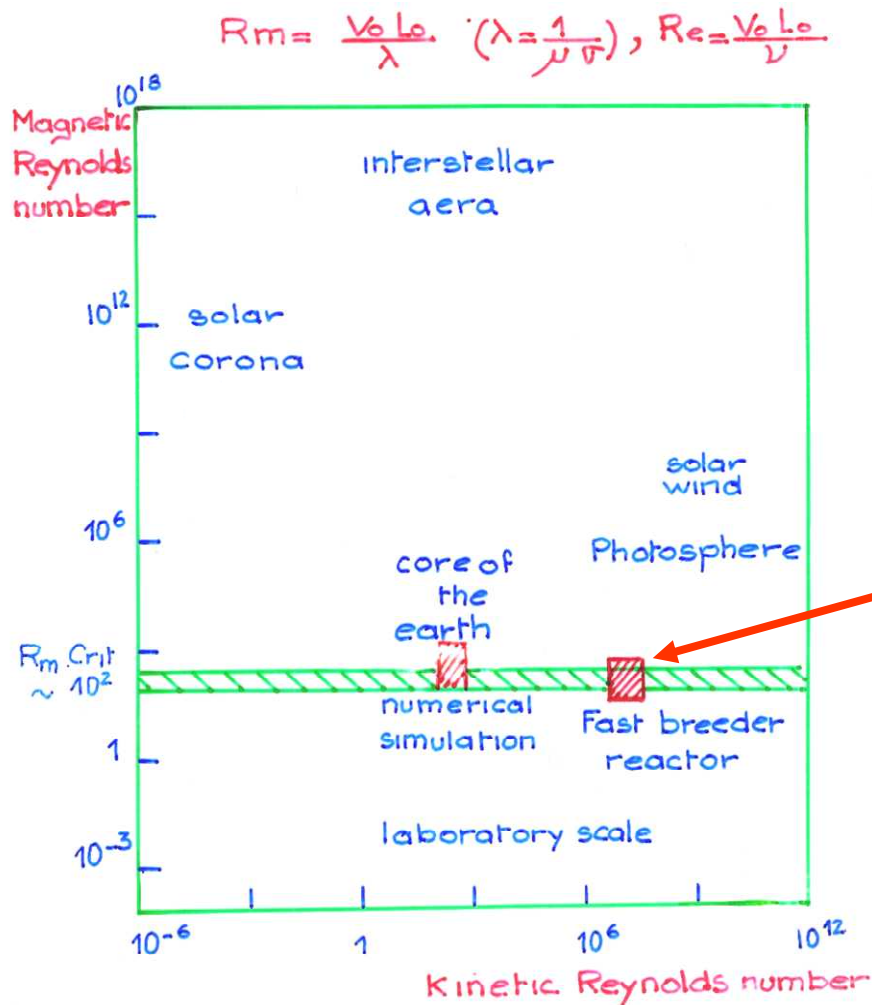 Rm = V₀ L₀ / λ (λ = 1 / μ σ), Re = V₀ L₀ / ν
10¹⁸
Magnetic
Reynolds
number
interstellar
aera
10¹²
solar
corona
solar
wind
10⁶
Photosphere
core of
the
earth
Rm Crit
~ 10²
numerical
simulation
Fast breeder
reactor
1
laboratory scale
10⁻³
10⁻⁶ 1 10⁶ 10¹²
Kinetic Reynolds number